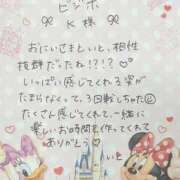 ビジホ
K様
おにいさまといと、相性
抜群だったね!?!?♡
いっぱい感じてくれる姿が
たまらなくって、3回転しちゃた
たくさん感じてくれて、一緒に
楽しいお時間を作ってくれて
ありがとう♡